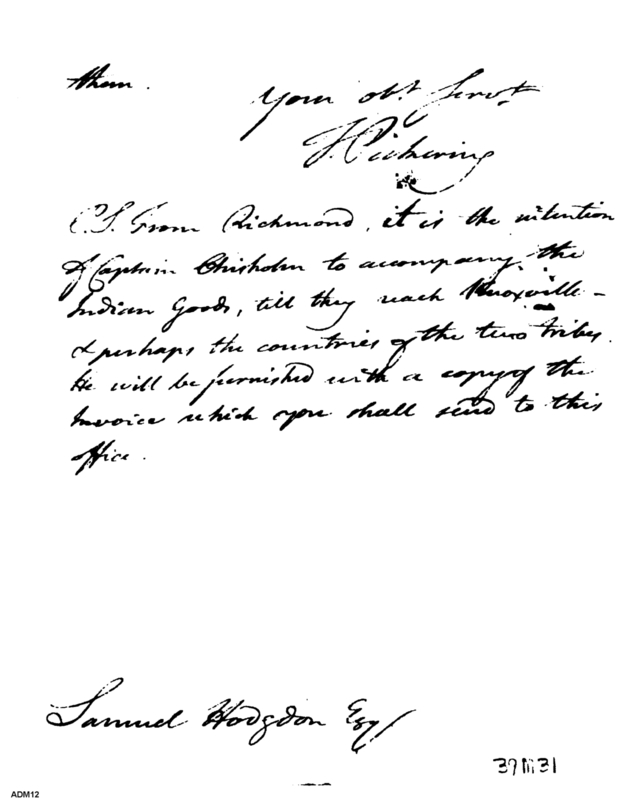 them.
Your obt. Servt
T. Pickering
P.S. From Richmond, it is the intention
of Captain Chisholm to accompany the
Indian Goods, till they reach Knoxville –
& perhaps the countries of the two tribes.
He will be furnished with a copy of the
Invoice which you shall send to this
office.
Samuel Hodgdon Esqr
39M31
ADM12